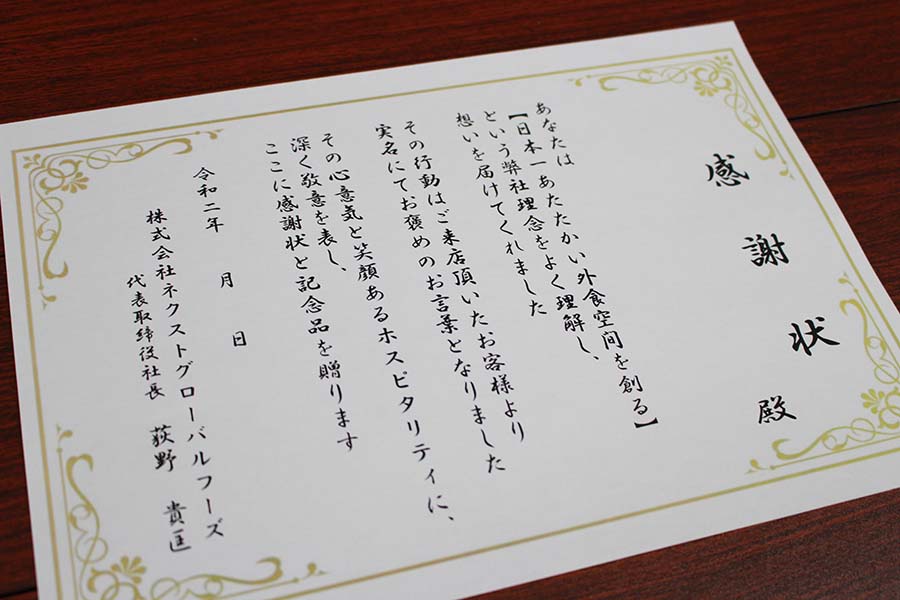 感謝状
殿
あなたは
【日本一あたたかい外食空間を創る】
という弊社理念をよく理解し、
想いを届けてくれました
その行動はご来店頂いたお客様より
実名にてお褒めのお言葉となりました
その心意気と笑顔あるホスピタリティに、
深く敬意を表し、
ここに感謝状と記念品を贈ります
令和二年 月 日
株式会社ネクストグローバルフーズ
代表取締役社長 荻野 貴匡